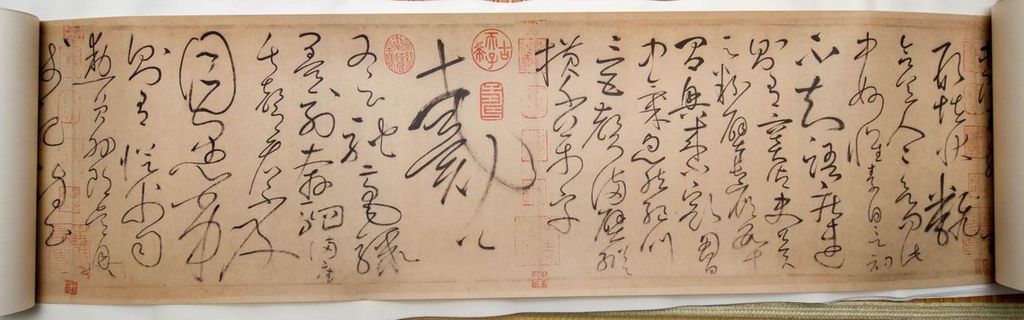 怪狀翻
合宜人人欲問此
中妙懷素自言初
不知語疾速
則有竇御史冀
云粉壁長廊數十
間興來小豁胸
中氣忽然絕叫
三五聲滿壁縱
橫千萬字
戴公
又云馳毫驟
墨列奔駟滿座
失聲看不及
目愚劣
則有從父司
勳員外郎吳興
錢起詩云